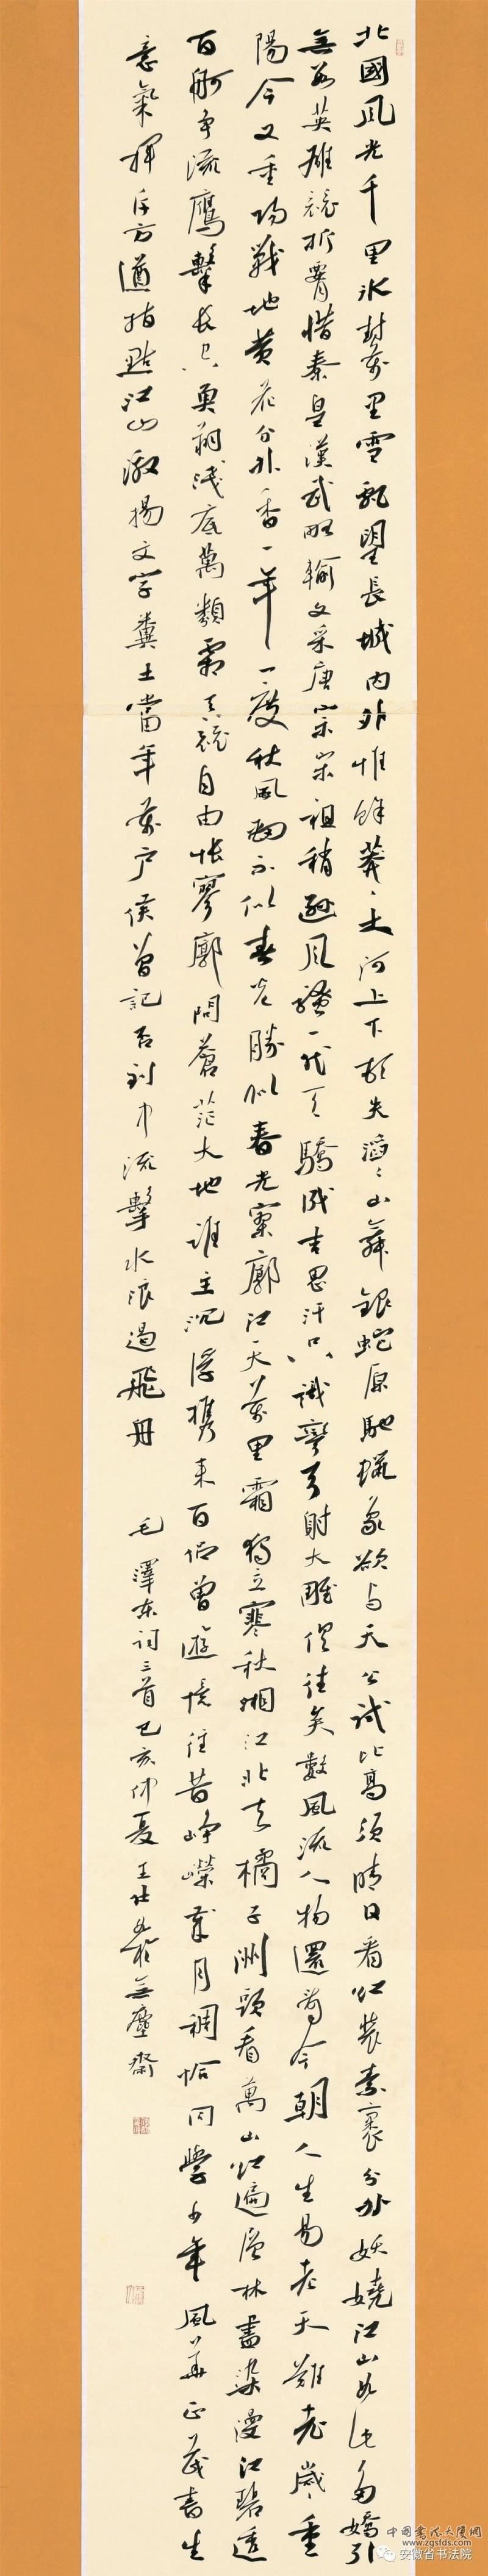 北國風光千里冰封萬里雪飄望長城內外惟餘莽〻大河上下頓失滔〻山舞銀蛇原馳蠟象欲與天公試比高須晴日看紅裝素裹分外妖嬈江山如此多嬌引
無數英雄競折腰惜秦皇漢武略輸文采唐宗宋祖稍遜風騷一代天驕成吉思汗只識彎弓射大雕俱往矣數風流人物還看今朝人生易老天難老歲〻重
陽今又重陽戰地黃花分外香一年一度秋風勁不似春光勝似春光寥廓江天萬里霜獨立寒秋湘江北去橘子洲頭看萬山紅遍層林盡染漫江碧透
百舸爭流鷹擊長空魚翔淺底萬類霜天競自由悵寥廓問蒼茫大地誰主沉浮攜來百侶曾遊憶往昔崢嶸歲月稠恰同學少年風華正茂書生
意氣揮斥方遒指點江山激揚文字糞土當年萬戶侯曾記否到中流擊水浪遏飛舟 毛澤東詞三首己亥仲夏王 無塵齋
中国书法大厦网
www.zgsfds.com
安徽省书法院